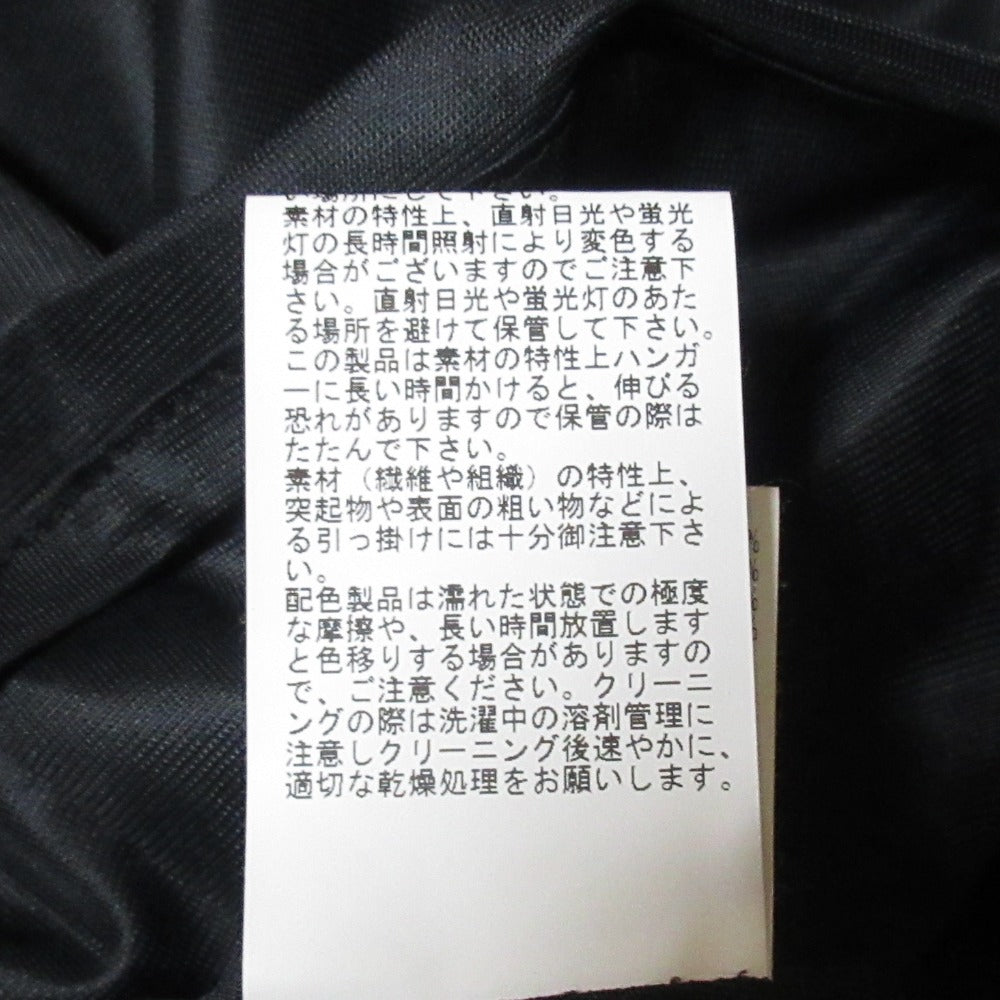 い場所にして下さい。
素材の特性上、直射日光や蛍光
灯の長時間照射により変色する
場合がございますのでご注意下
さい。直射日光や蛍光灯のあた
る場所を避けて保管して下さい。
この製品は素材の特性上ハンガ
ーに長い時間かけると、伸びる
恐れがありますので保管の際は
たたんで下さい。
素材（繊維や組織）の特性上、
突起物や表面の粗い物などによ
る引っ掛けには十分御注意下さ
い。
配色製品は濡れた状態での極度
な摩擦や、長い時間放置します
と色移りする場合がありますの
で、ご注意ください。クリーニ
ングの際は洗濯中の溶剤管理に
注意しクリーニング後速やかに、
適切な乾燥処理をお願いします。
%
%
%